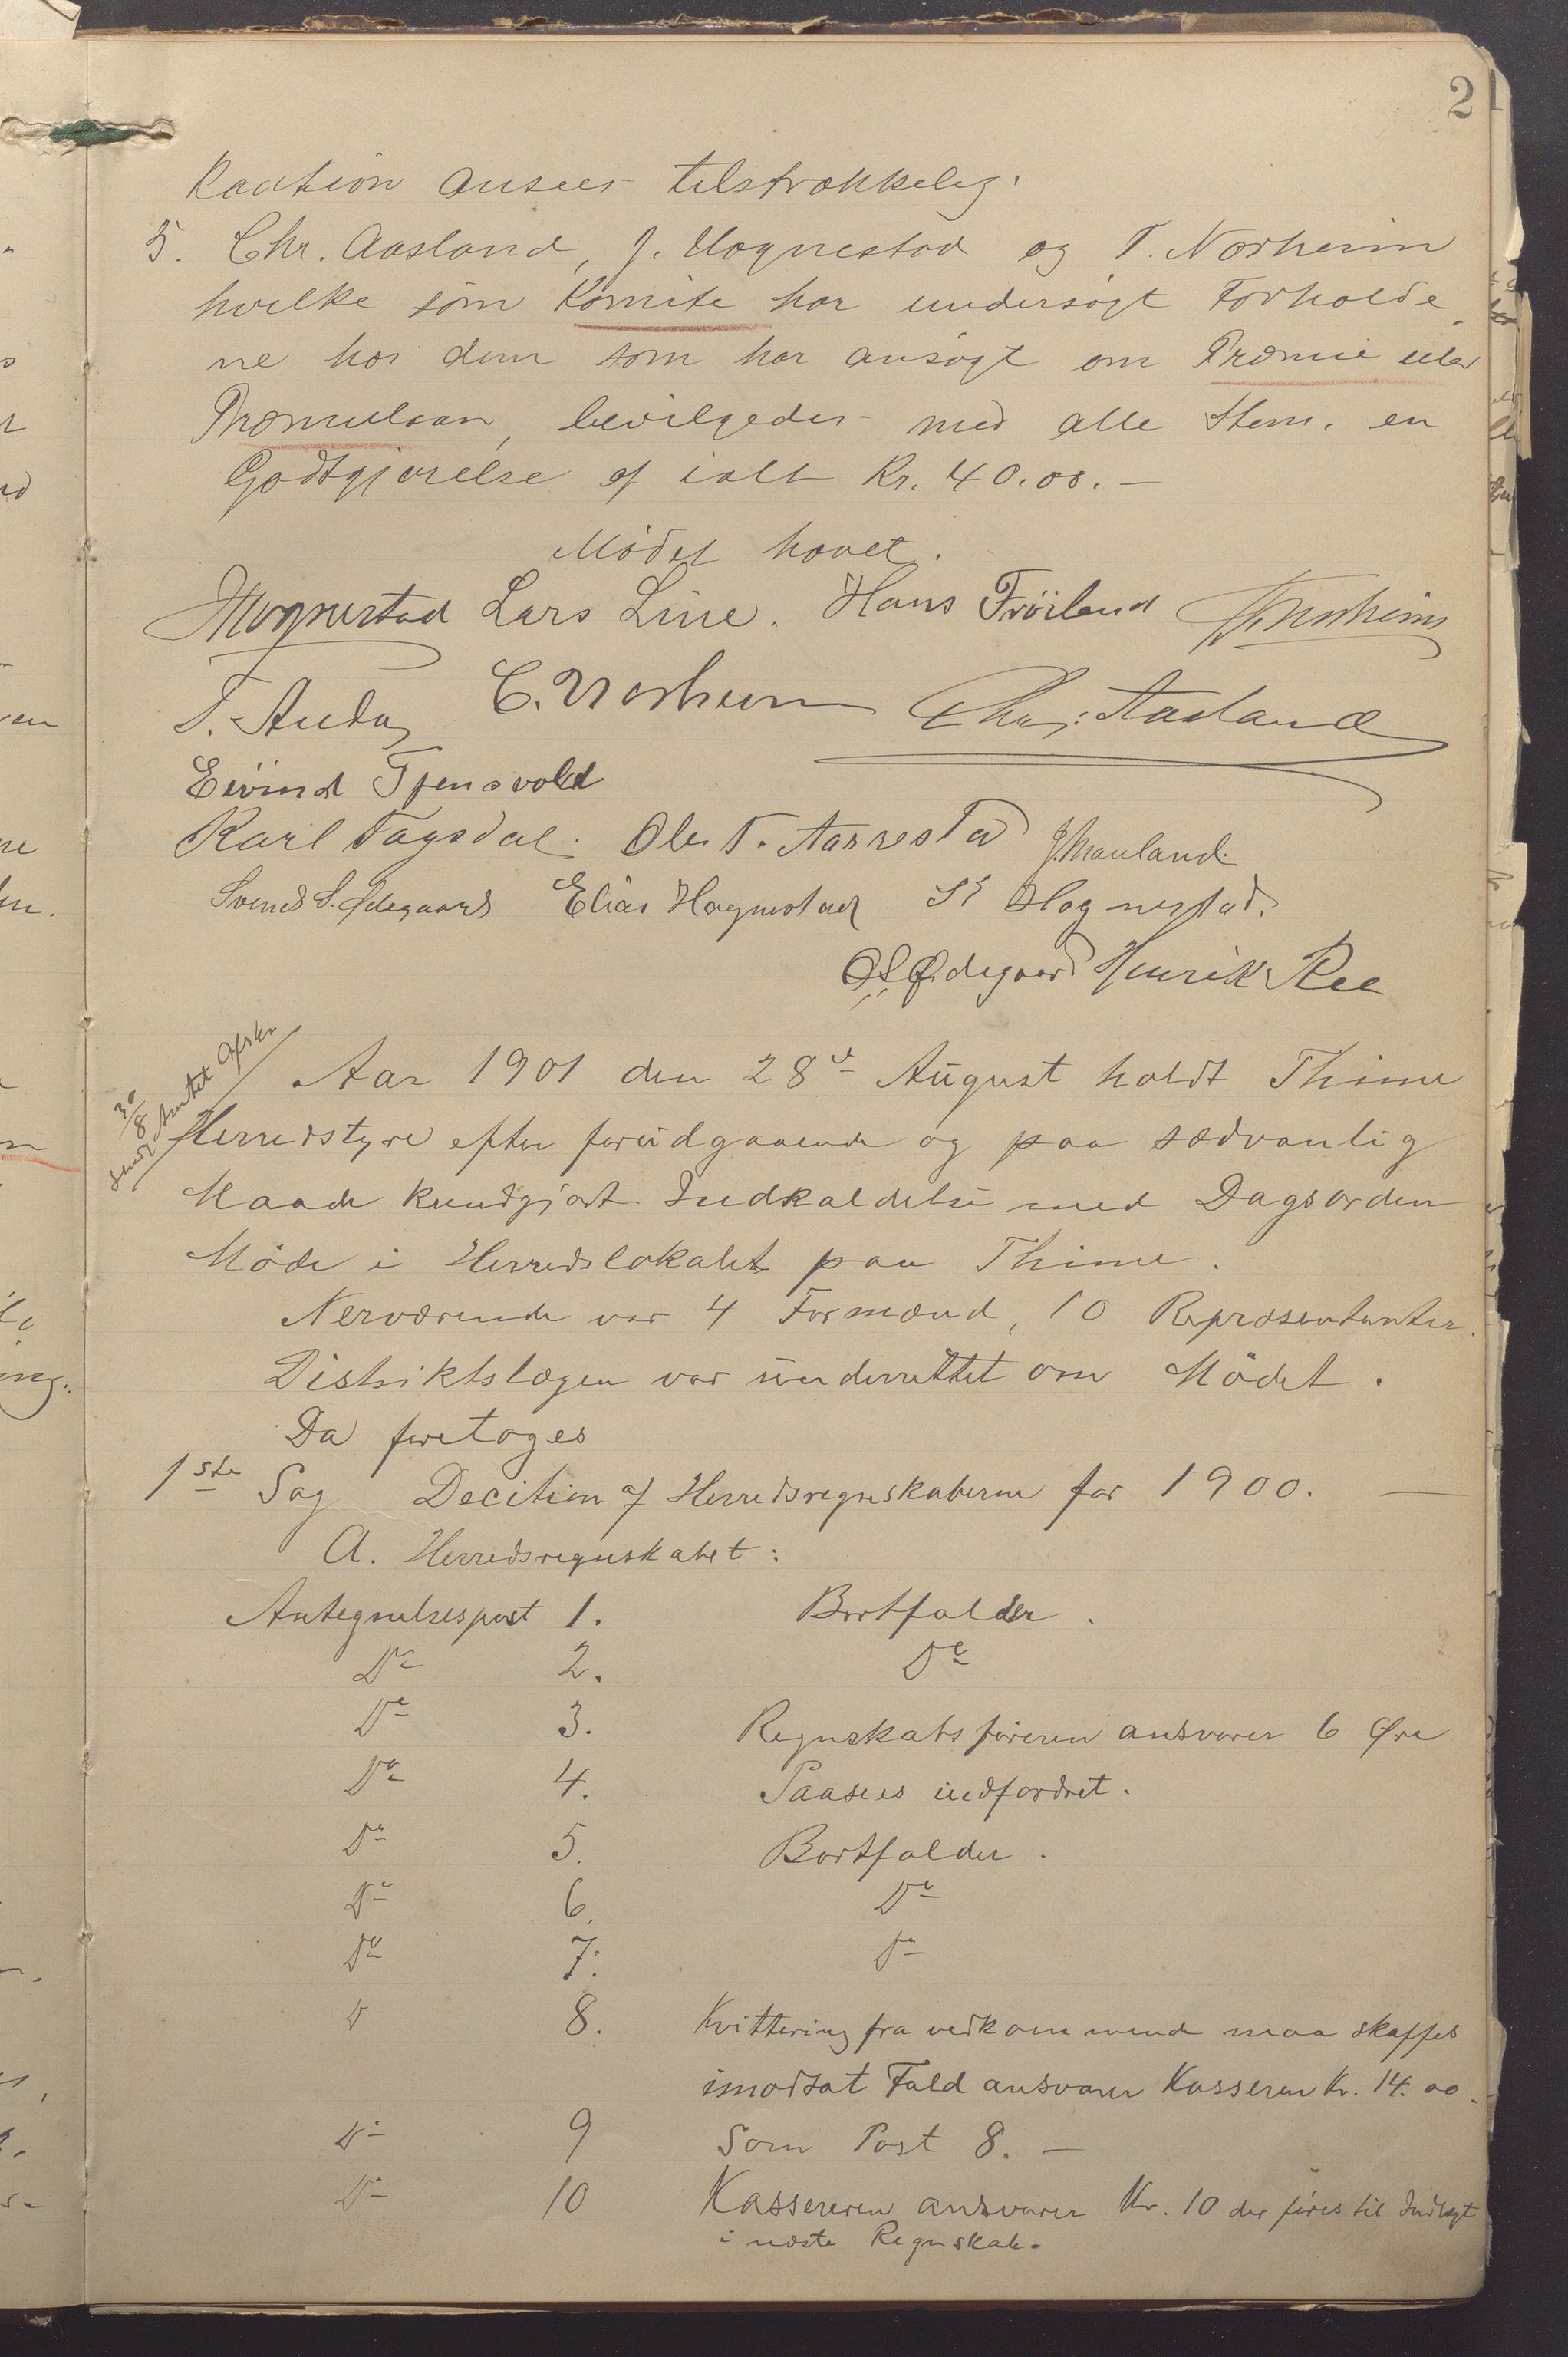 2
Kaution ansees tilstrækkelig.
5. Chr. Aasland, J. Hognestad og T. Norheim
hvilke som Komite har undersøgt Forholde-
ne hos dem som har ansøgt om Præmie eller
Præmielaan, bevilgedes med alle Stem. en
Godtgjørelse af ialt Kr. 40.00. —
Mødet hævet.
JHognestad Lars Line. Hans Frøiland T. Norheim
T. Auda C. Norheim Chr. Aasland
Eivind Tjensvold
Karl Fagsdal. Ole T. Aarrestad J. Mauland.
Svend S. Ødegaard Elias Hognestad Hognestad.
O S Ødegaard Henrik Ree
30/8 sendt Amtet Afskr
Aar 1901 den 28de August holdt Thime
Herredstyre efter forudgaaende og paa sædvanlig
Maade kundgjort Indkaldelse med Dagsorden
Møde i Herredslokalet paa Thime.
Nerværende var 4 Formænd, 10 Repræsentanter.
Distriktslægen var underrettet om Mødet.
Da foretoges
1ste Sag Decition af Herredsregnskaberne for 1900. —
A. Herredsregnskabet:
Antegnelsespost 1. Bortfalder.
Do 2. Do
Do 3. Regnskabsføreren ansvarer 6 Øre
Do 4. Paasees indfordret.
Do 5. Bortfalder.
Do 6. Do
Do 7. Do
D 8. Kvittering fra vedkommende maa skaffes
imodsat Fald ansvarer Kasseren Kr. 14.00.
Do 9 Som Post 8. —
Do 10 Kassereren ansvarer Kr. 10 der føres til Indtægt
i næste Regnskab.